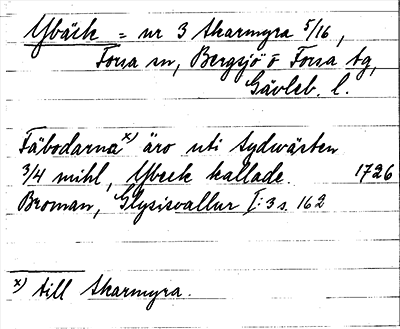 Ybäck = nr 3 Skarmyra 5/16,
Forsa sn, Bergsjö o Forsa tg,
Gävleb. l.
Fäbodarna x) äro uti Sydwästen
3/4 mihl, Ybeck kallade. 1726
Broman, Glysisvallur I:3 s. 162
x) till Skarmyra.